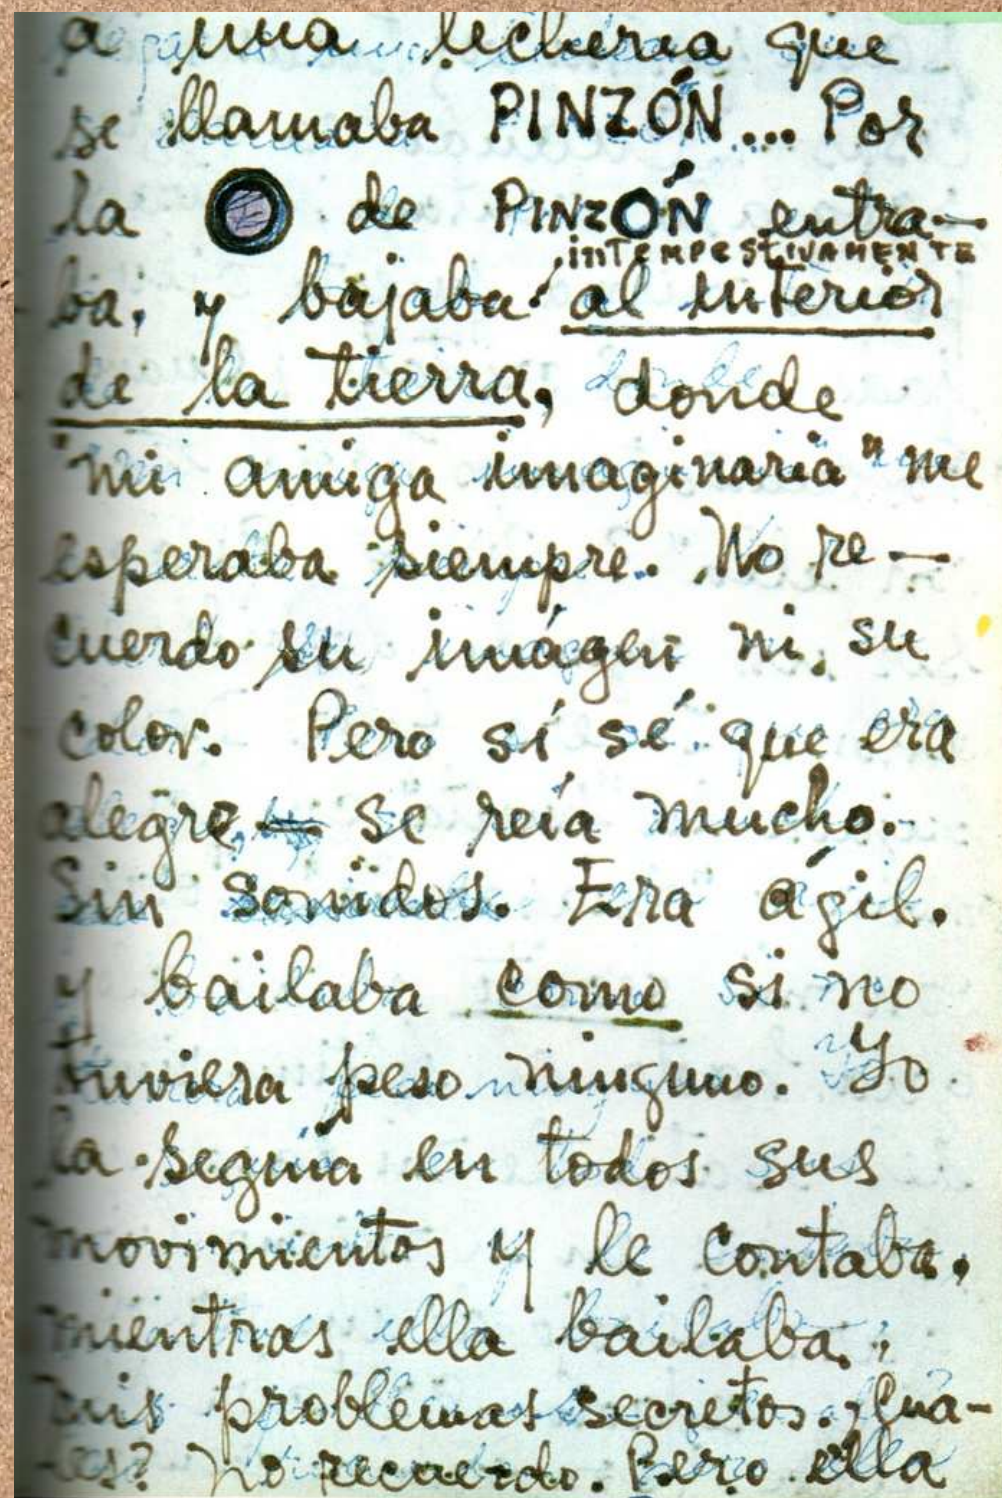 a una lecheria que
se llamaba PINZÓN... Por
la O de PINZÓN entra-
inTEMPESTIVAMENTE
ba, y bajaba al interior
de la tierra, donde
"mi amiga imaginaria" me
esperaba siempre. No re-
cuerdo su imágen ni su
color. Pero sí sé que era
alegre - se reía mucho.
Sin sonidos. Era ágil.
y bailaba como si no
tuviera peso ninguno. Yo
la seguía en todos sus
movimientos y le contaba,
mientras ella bailaba,
mis problemas secretos. ¿Cuá-
les? No recuerdo. Pero ella